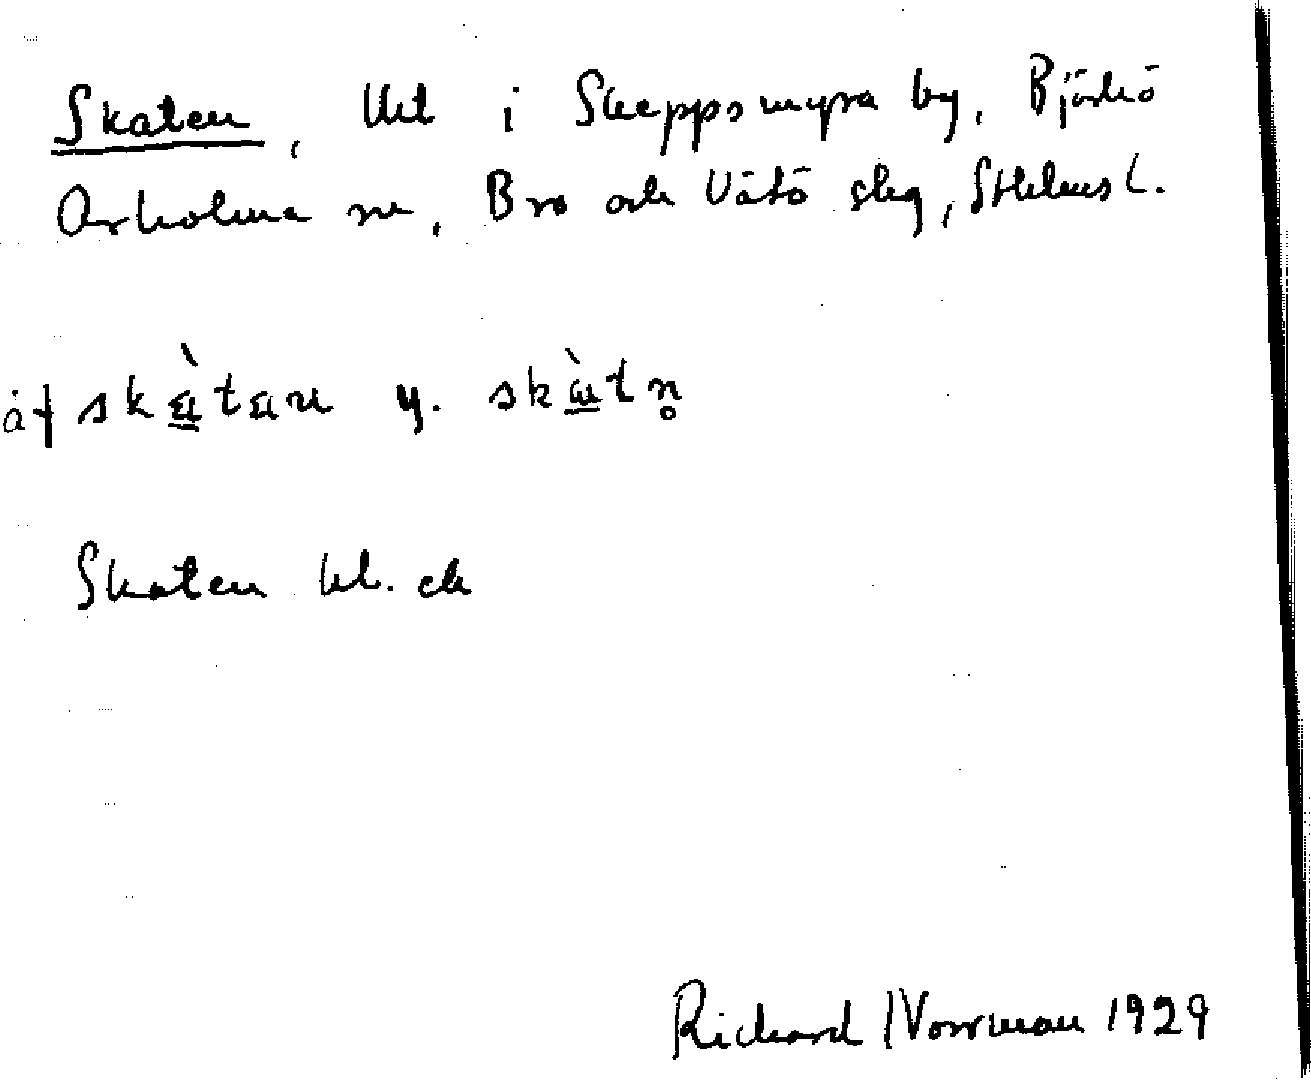 Skaten, Utl i Skeppsmyra by, Björkö
Arholma sn, Bro och Vätö skg, Sthlms l.
skàtan y. skàtn̥
Skaten kl. ek
Richard Norrman 1929